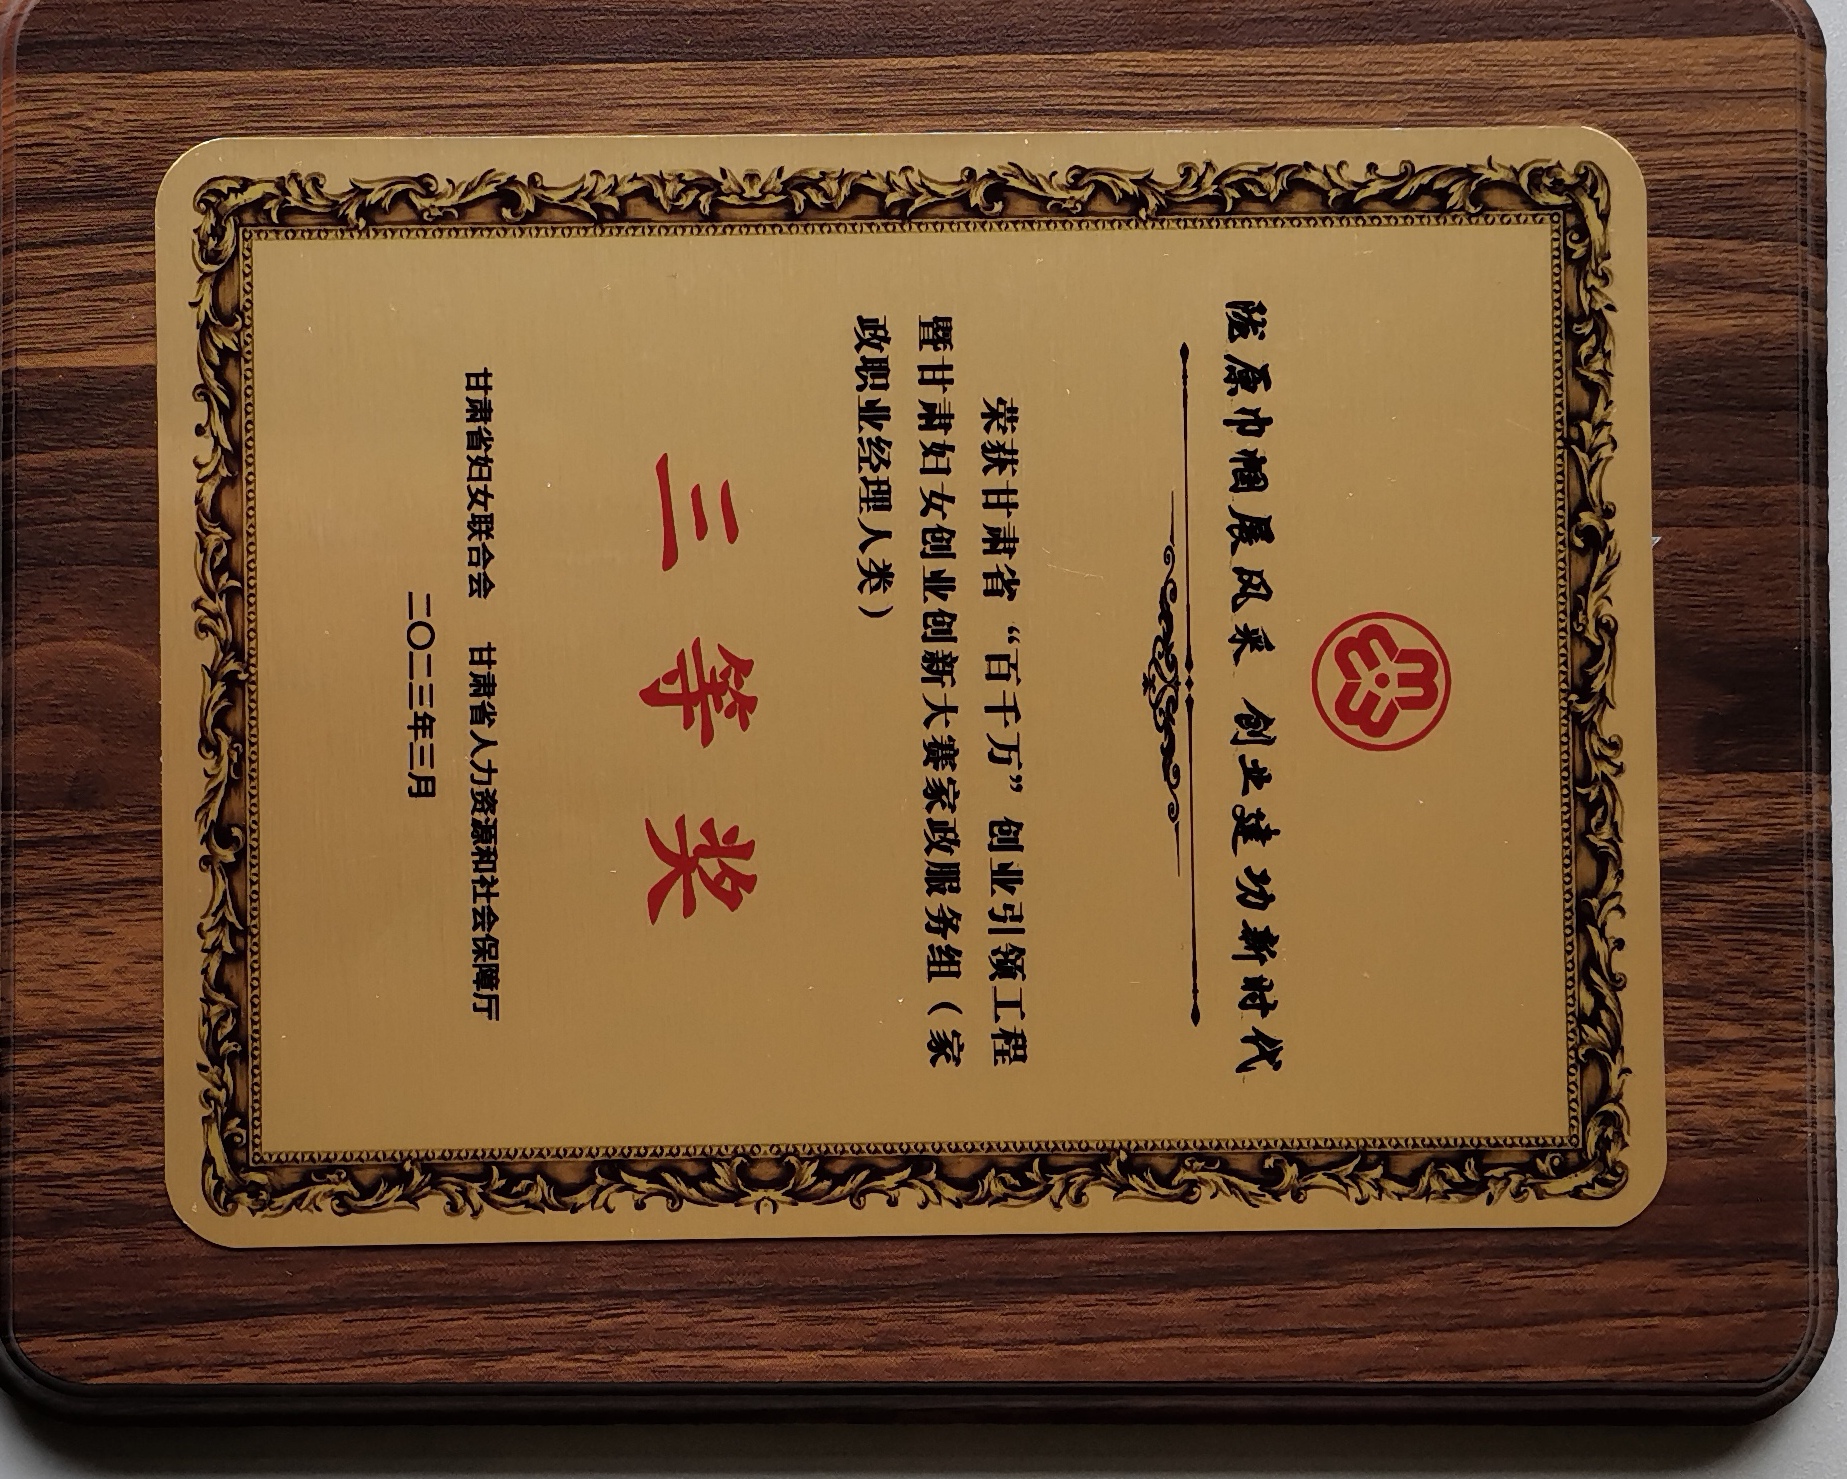 陇原巾帼展风采 创业建功新时代
荣获甘肃省“百千万”创业引领工程
暨甘肃妇女创业创新大赛家政服务组（家
政职业经理人类）
三等奖
甘肃省妇女联合会 甘肃省人力资源和社会保障厅
二〇二三年三月